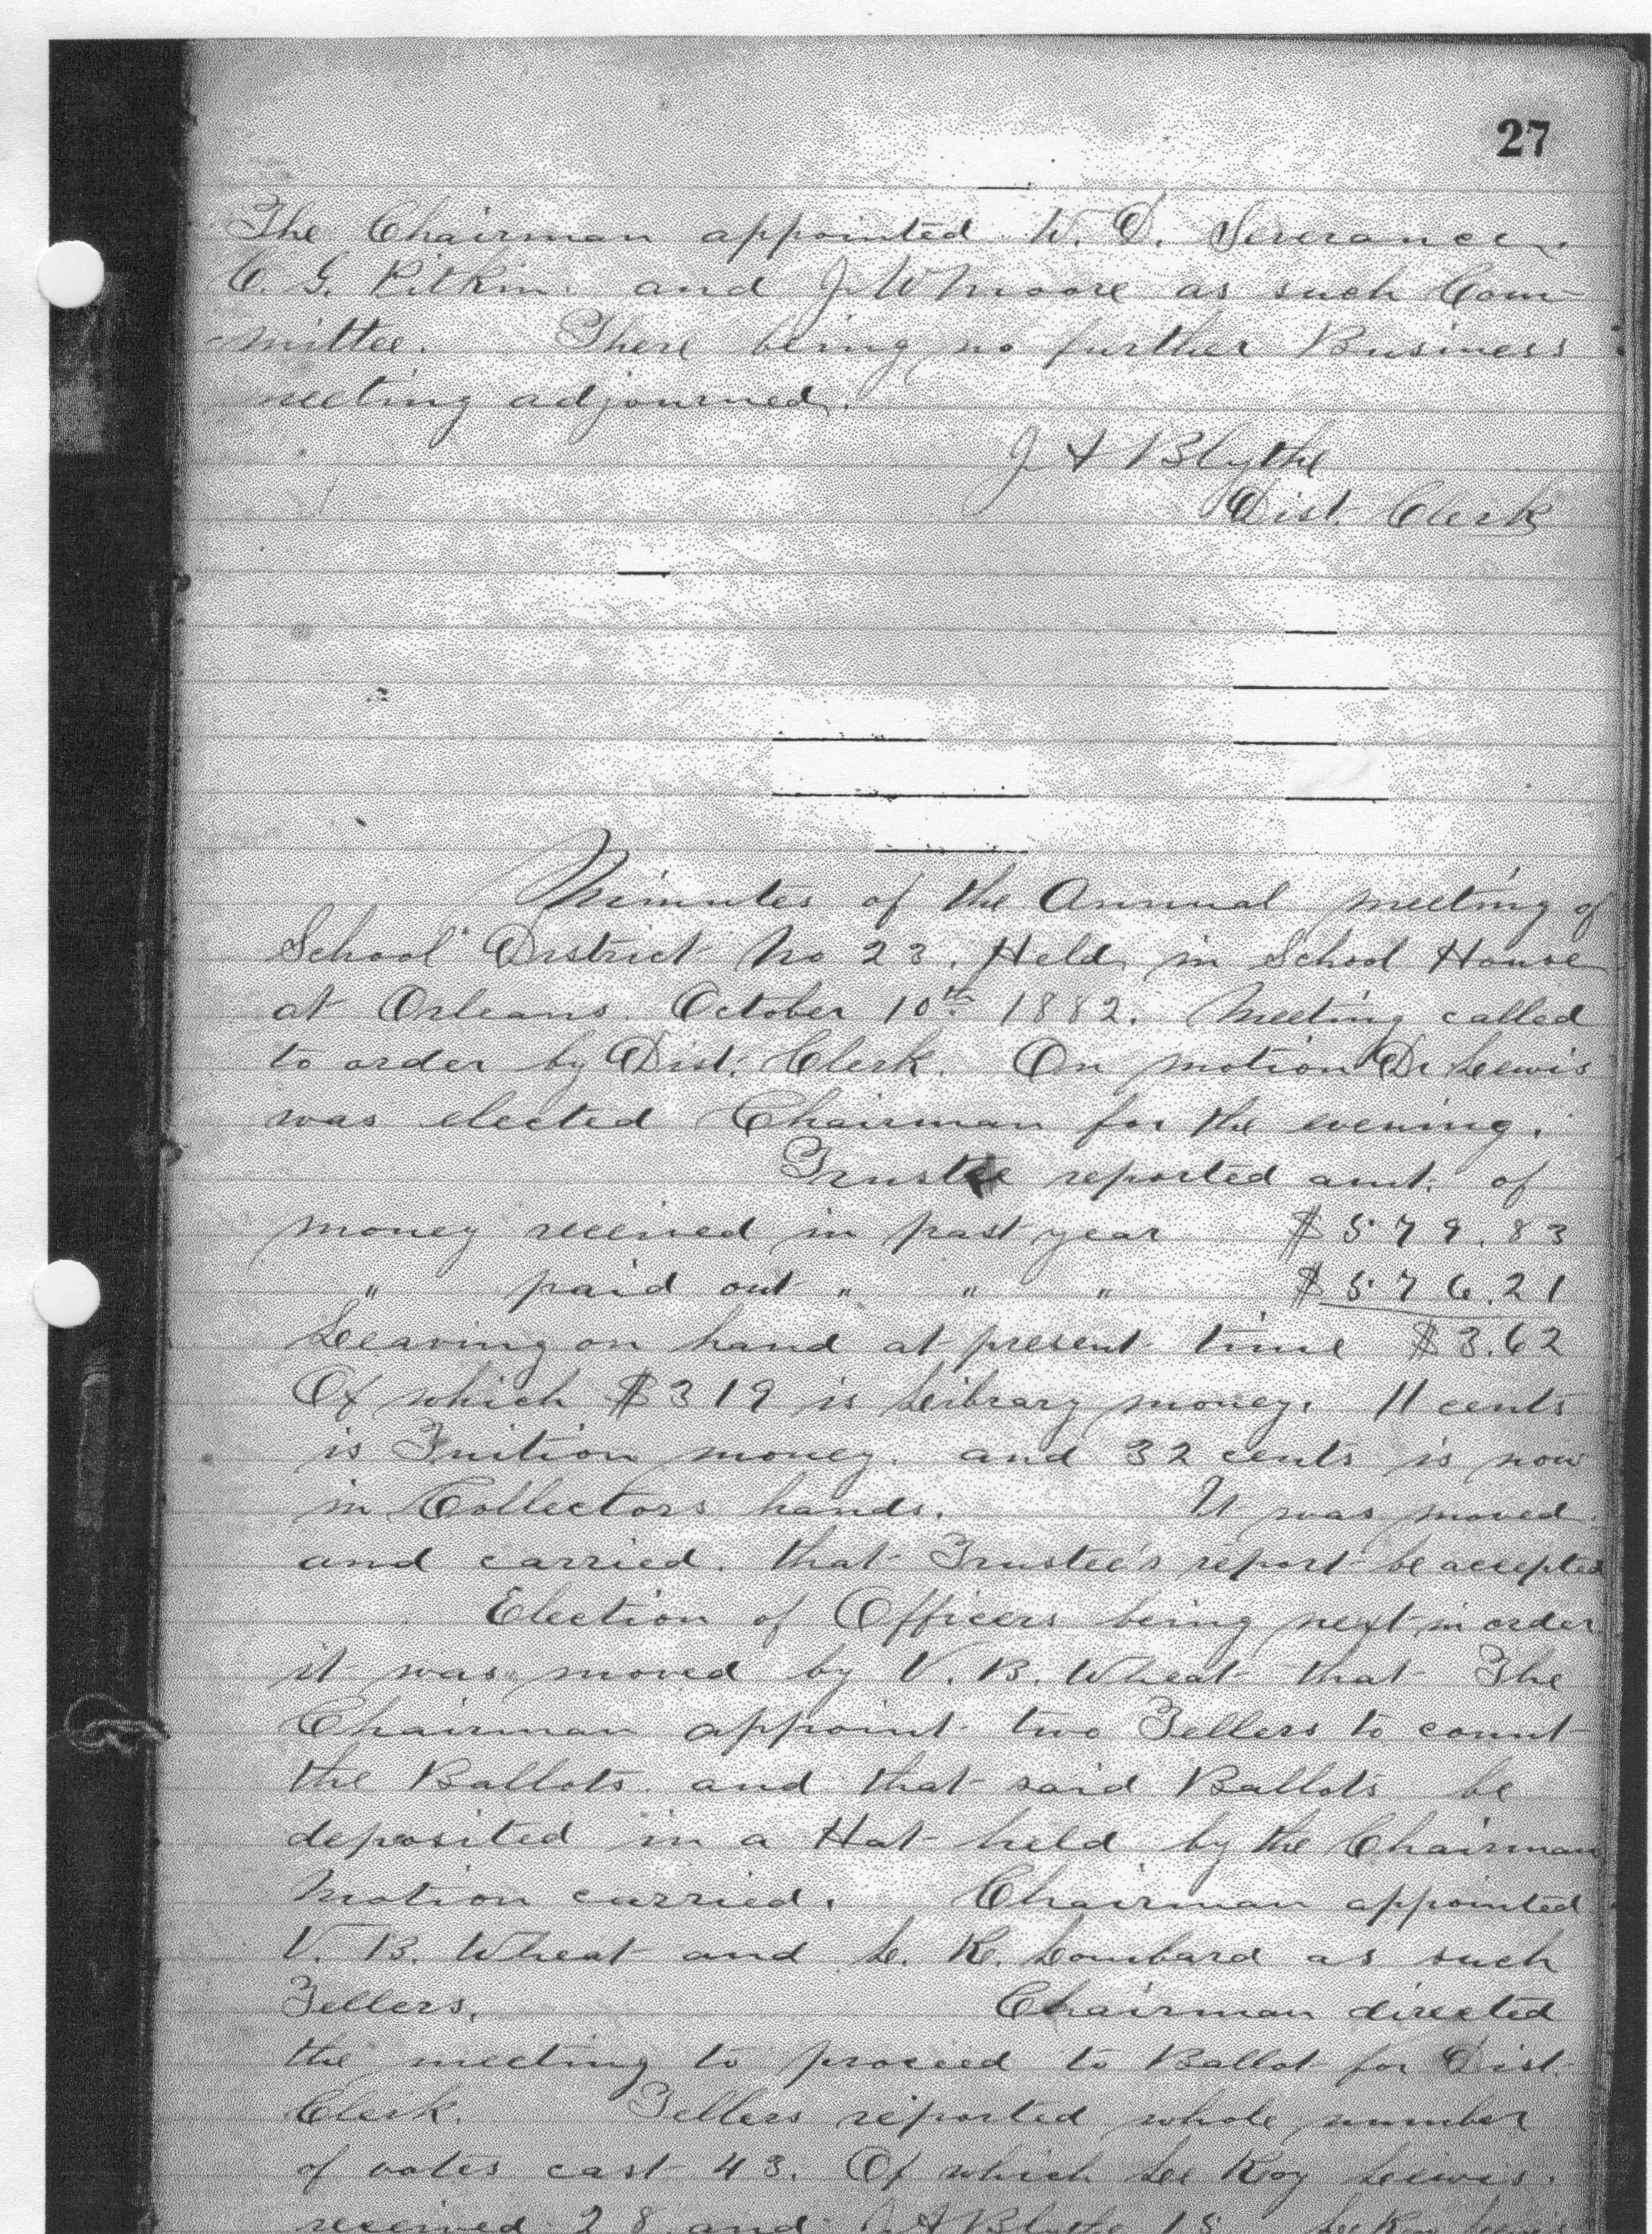 27
The Chairman appointed W. D. Severance.
C. G. Pitkin. and J W Moore as such Com-
-mittee. There being no further Business
meeting adjourned.
J A Blythe
Dist. Clerk
Minutes of the Annual meeting of
School District No 23. Held in School House
at Orleans. October 10th 1882. Meeting called
to order by Dist. Clerk. On motion Dr Lewis
was elected Chairman for the evening.
Trustee reported amt. of
money received in past year $579.83
" paid out " " " $576.21
Leaving on hand at present time $3.62
Of which $319 is Library money. 11 cents
is Tuition money. and 32 cents is now
in Collectors hands. It was moved.
and carried. that Trustee's report be accepted
Election of Officers being next in order
it was moved by V. B. Wheat that The
Chairman appoint two Tellers to count
the Ballots. and that said Ballots be
deposited in a Hat held by the Chairman
Motion carried. Chairman appointed
V. B. Wheat and L. R. Lombard as such
Tellers. Chairman directed
the meeting to proceed to Ballot for Dist.
Clerk. Tellers reported whole number
of votes cast 43. Of which Lee Roy Lewis.
received 28 and J A Blythe 15